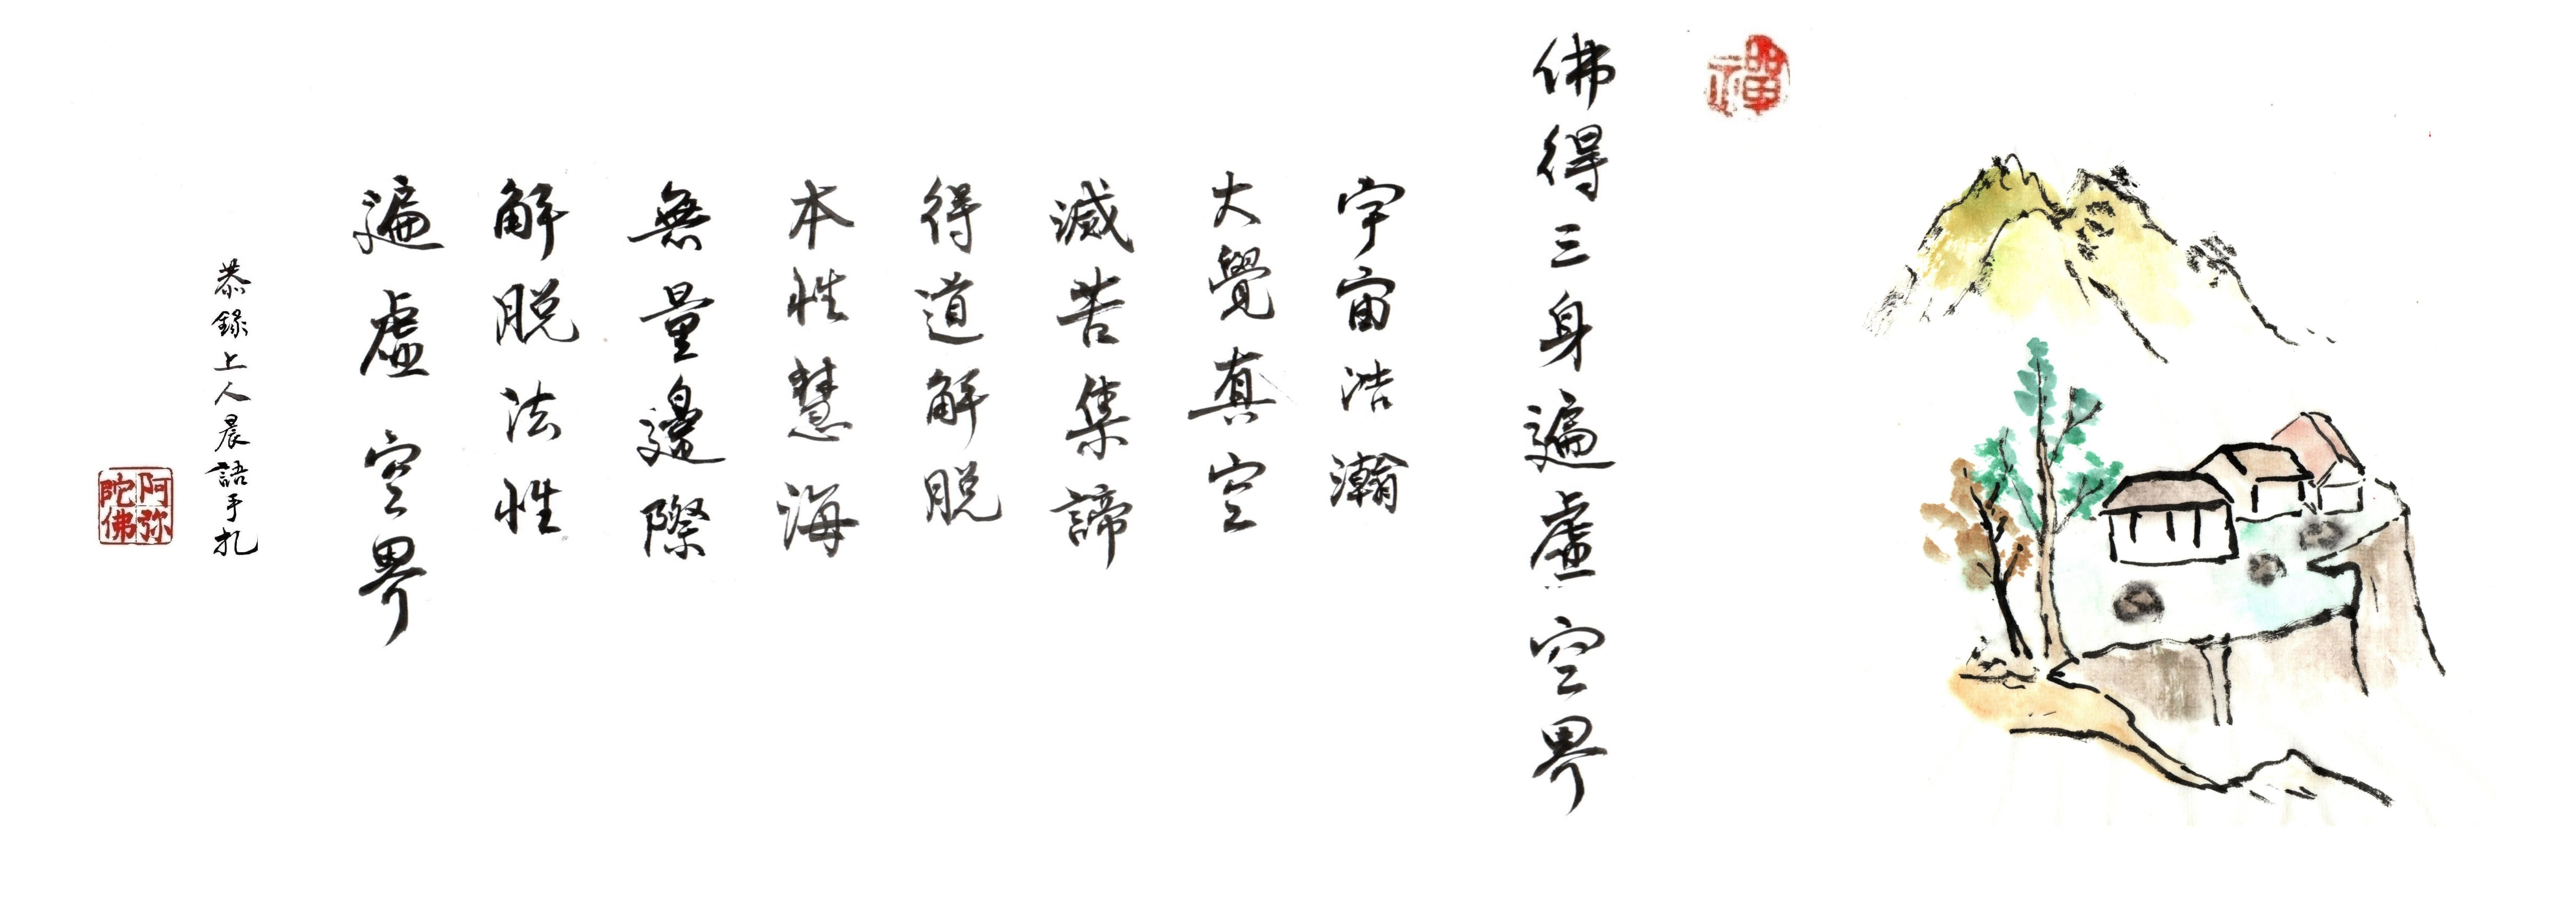 禪
佛得三身遍虛空界
宇宙浩瀚
大覺真空
滅苦集諦
得道解脫
本性慧海
無量邊際
解脫法性
遍虛空界
恭錄上人晨語手扎
阿弥陀佛